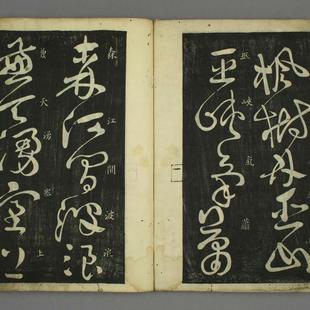 楓樹林巫山
巫峽氣蕭
巫峽氣蕭
森江間波浪
森江間波浪
兼天湧塞上
兼天湧塞上